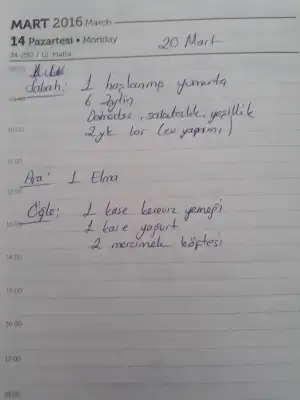 MART 2016 March
14 Pazartesi • Monday
20 Mart
74-292 / 12. Hafta
Sabah: 1 haşlanmış yumurta
6 zeytin
Domates, salatalık, yeşillik
2 yk lor (ev yapımı)
10:00
11:00
Ara: 1 Elma
12:00
Öğle: 1 kase kereviz yemeği
13:00
1 kase yoğurt
2 mercimek köftesi
14:00
15:00
16:00
17:00
18:00